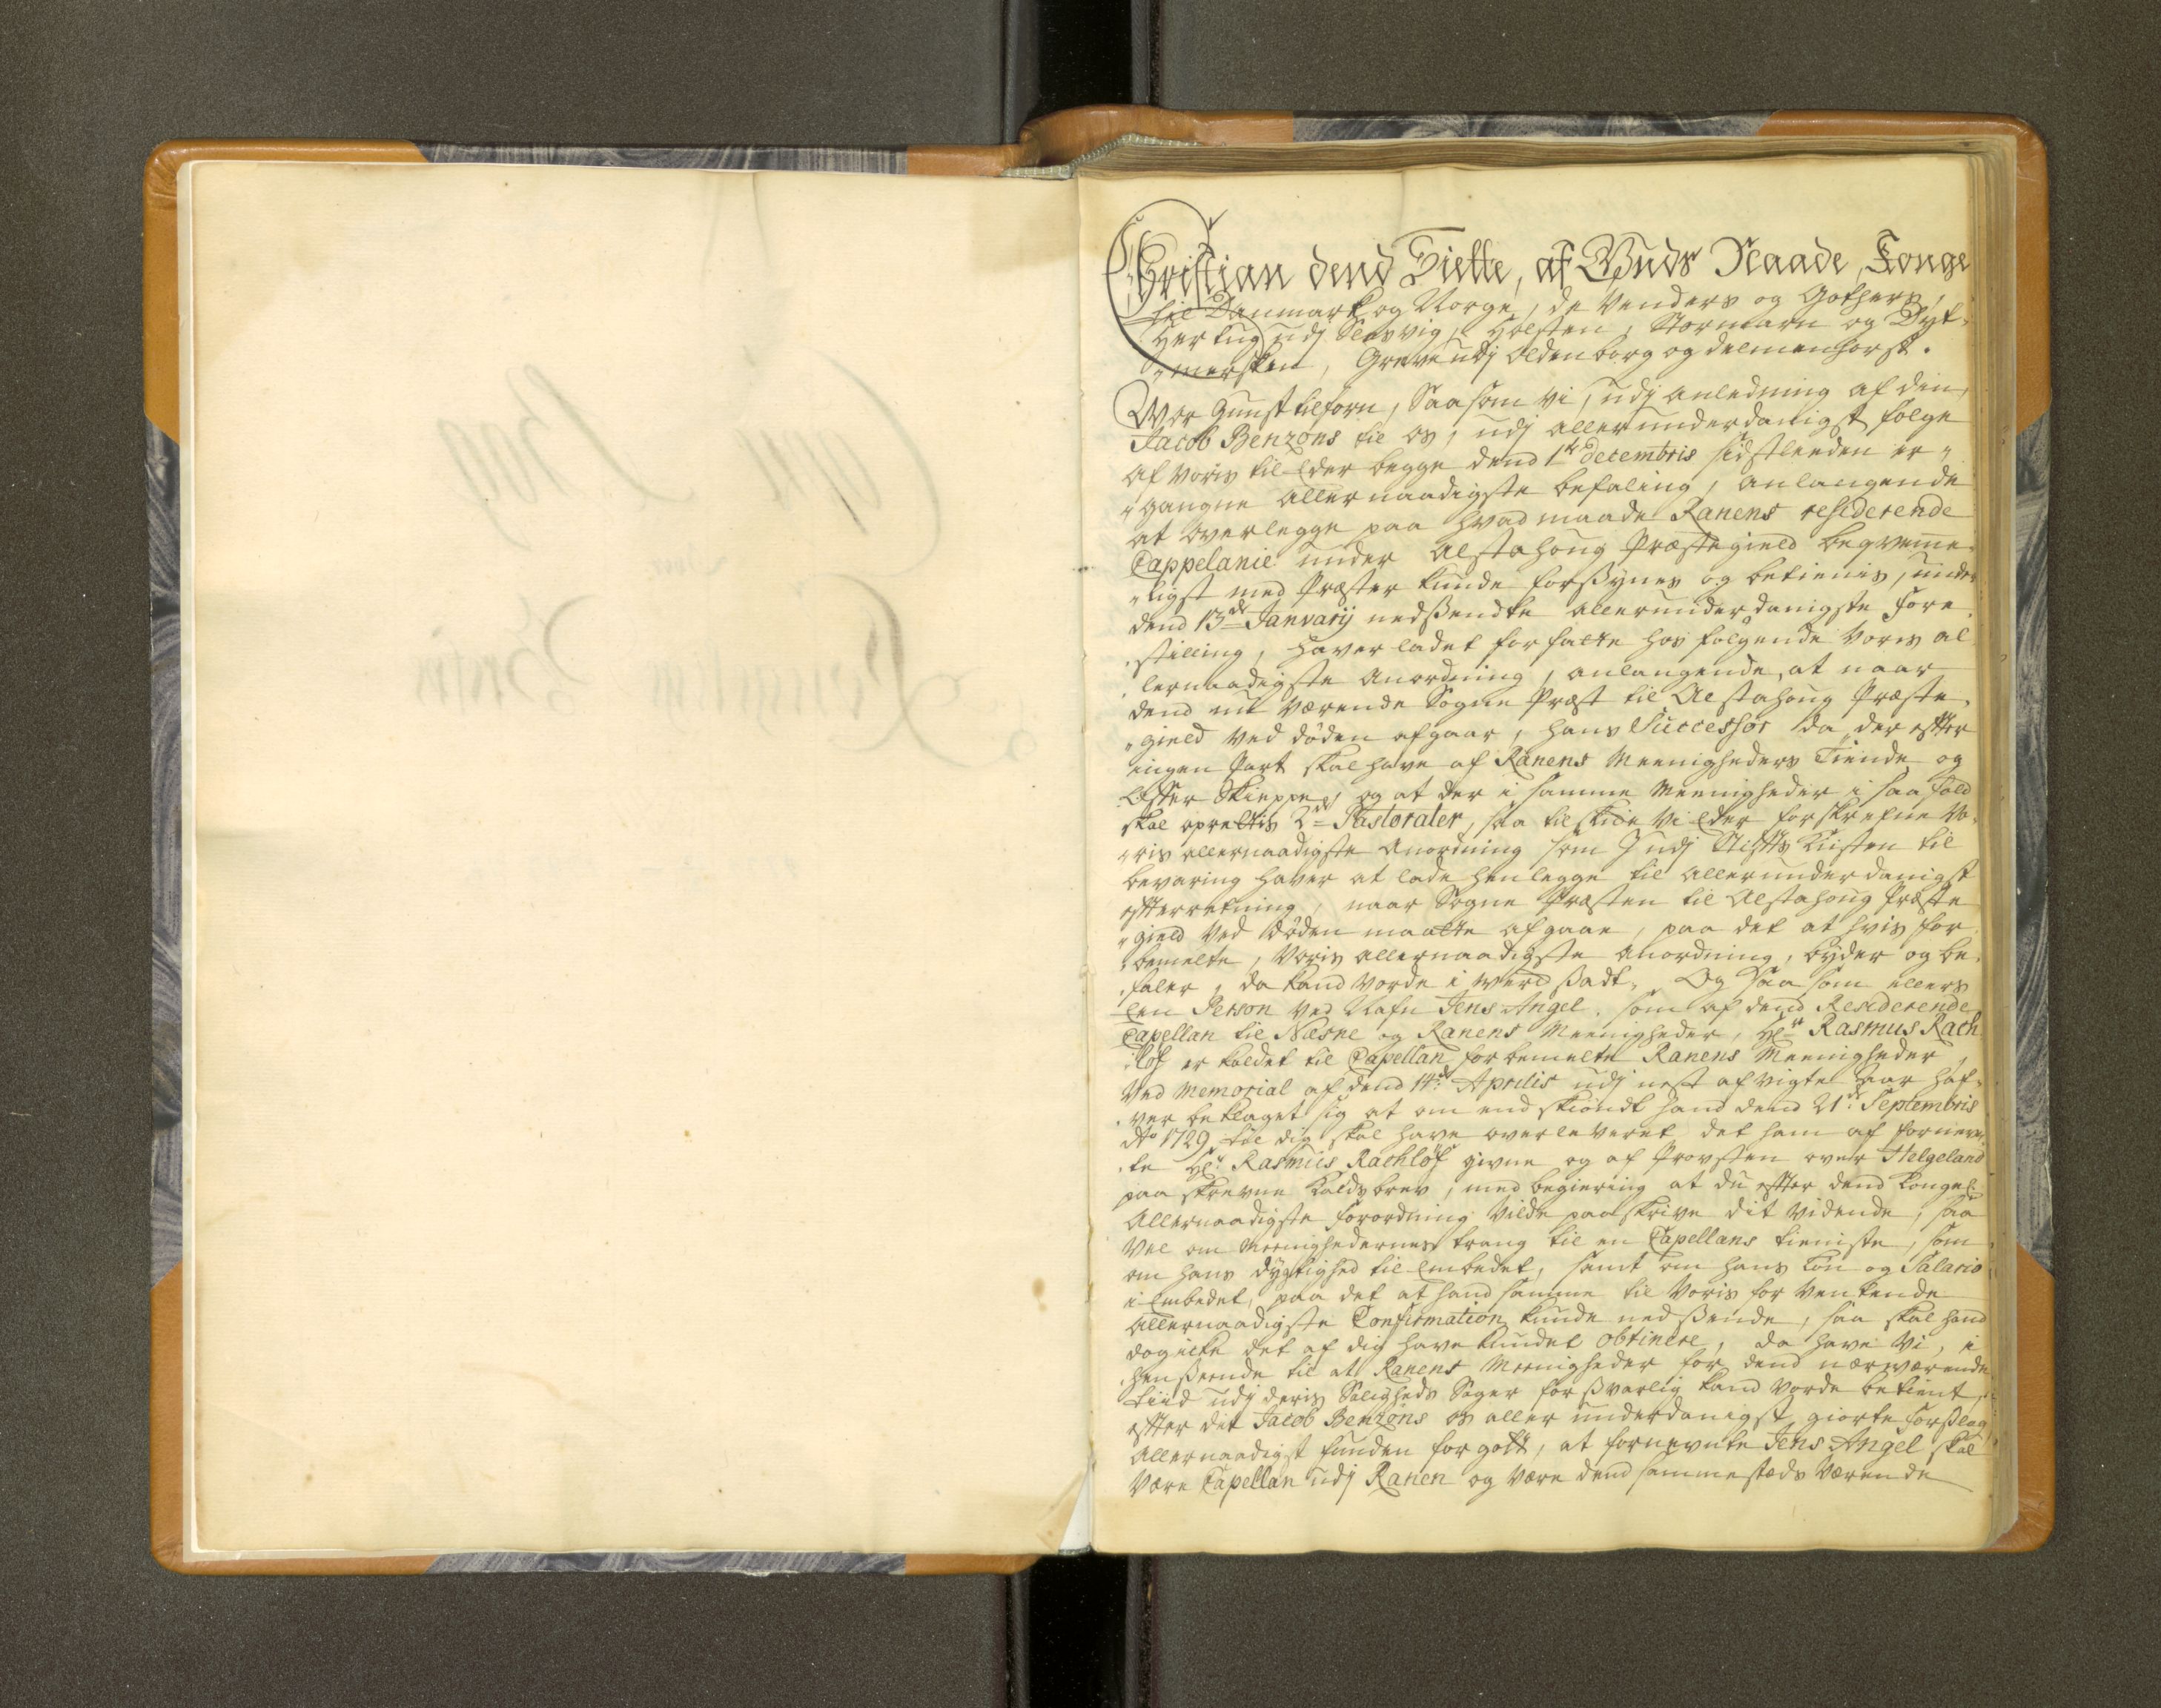 Christian dend Siette, af Guds Naade, Konge
til Danmark og Norge, de Venders og Gothers,
Hertug udj Slesvig, Holsten, Stormarn og Dyt-
"mersken, Greve udj Oldenborg og Delmenhorst.
Vor Gunst tilforn, Saasom vi, udj anledning af din,
Jacob Benzons til os, udj allerunderdanigst følge
af voris til Eder begge dend 1ste Decembris sidstleeden er-
"gangne allernaadigste befaling, anlangende
at overlegge paa hvad maade Ranens residerende
Cappelanie under Alstahoug Præstegield beqveme-
"ligst med Præster kunde forsÿnes og betienis, under
dend 13de Janvarij nedsendte allerunderdanigste fore-
"stilling, haver ladet forfatte hos følgende Voris al-
"lernaadigste Anordning, anlangende, at naar
dend nu værende Sogne Præst til Alstahoug Præste-
"gield ved døden afgaar, hans Successor da der efter
ingen Part skal have af Ranens Meenigheders Tiende og
og at der i samme Meenigheder i saa fald
skal oprettis 2de Pastorater, saa tilskicke Vi Eder forskrefne Vo-
"ris allernaadigste Anordning som I udj Stifts Kisten til
bevaring haver at lade henlegge til allerunderdanigst
efterretning, naar Sogne Præsten til Alstahoug Præste-
"gield ved døden maatte afgaae, paa det at hvis for-
"bemelte, Voris allernaadigste anordning, byder og be-
"faler, da kand vorde i værck sadt. Og saasom ellers
Een Person ved Nafn Jens Angel, som af dend Residerende
Capellan til Næsne og Ranens Meenigheder, Hr Rasmus Rach-
"løf er kaldet til Capellan for bemelte Ranens Meenigheder,
Ved Memorial af dend 14de Aprilis udj nest afvigte Aar haf-
"ver beklaget sig at om endskiøndt hand dend 21de Septembris
Ao 1729 til dig skal have overleveret det ham af fornevn-
"te Hr Rasmus Rachløf givne og af Provsten over Helgeland
paaskrevne Kaldsbrev, med begiering at du efter dend Kongel:
Allernaadigste forordning vilde paaskrive dit vidende, saa
vel om Meenighedernes trang til en Capellans tieniste, som
om hans dygtighed til Embedet, samt om hans Løn og Salario
i Embedet, paa det at hand samme til Voris for ventende
Allernaadigste Confirmation kunde nedsende, saa skal hand
dog icke det af dig have kundet obtinere, da have Vi, i
henseende til at Ranens Meenigheder for dend nærværende
tiid udj deris Saligheds Sager forsvarlig kand vorde betient,
efter dit Jacob Benzons os allerunderdanigst giorte forslag
Allernaadigst funden for gott, at fornevnte Jens Angel skal
være Capellan udj Ranen og være dend sammesteds værende